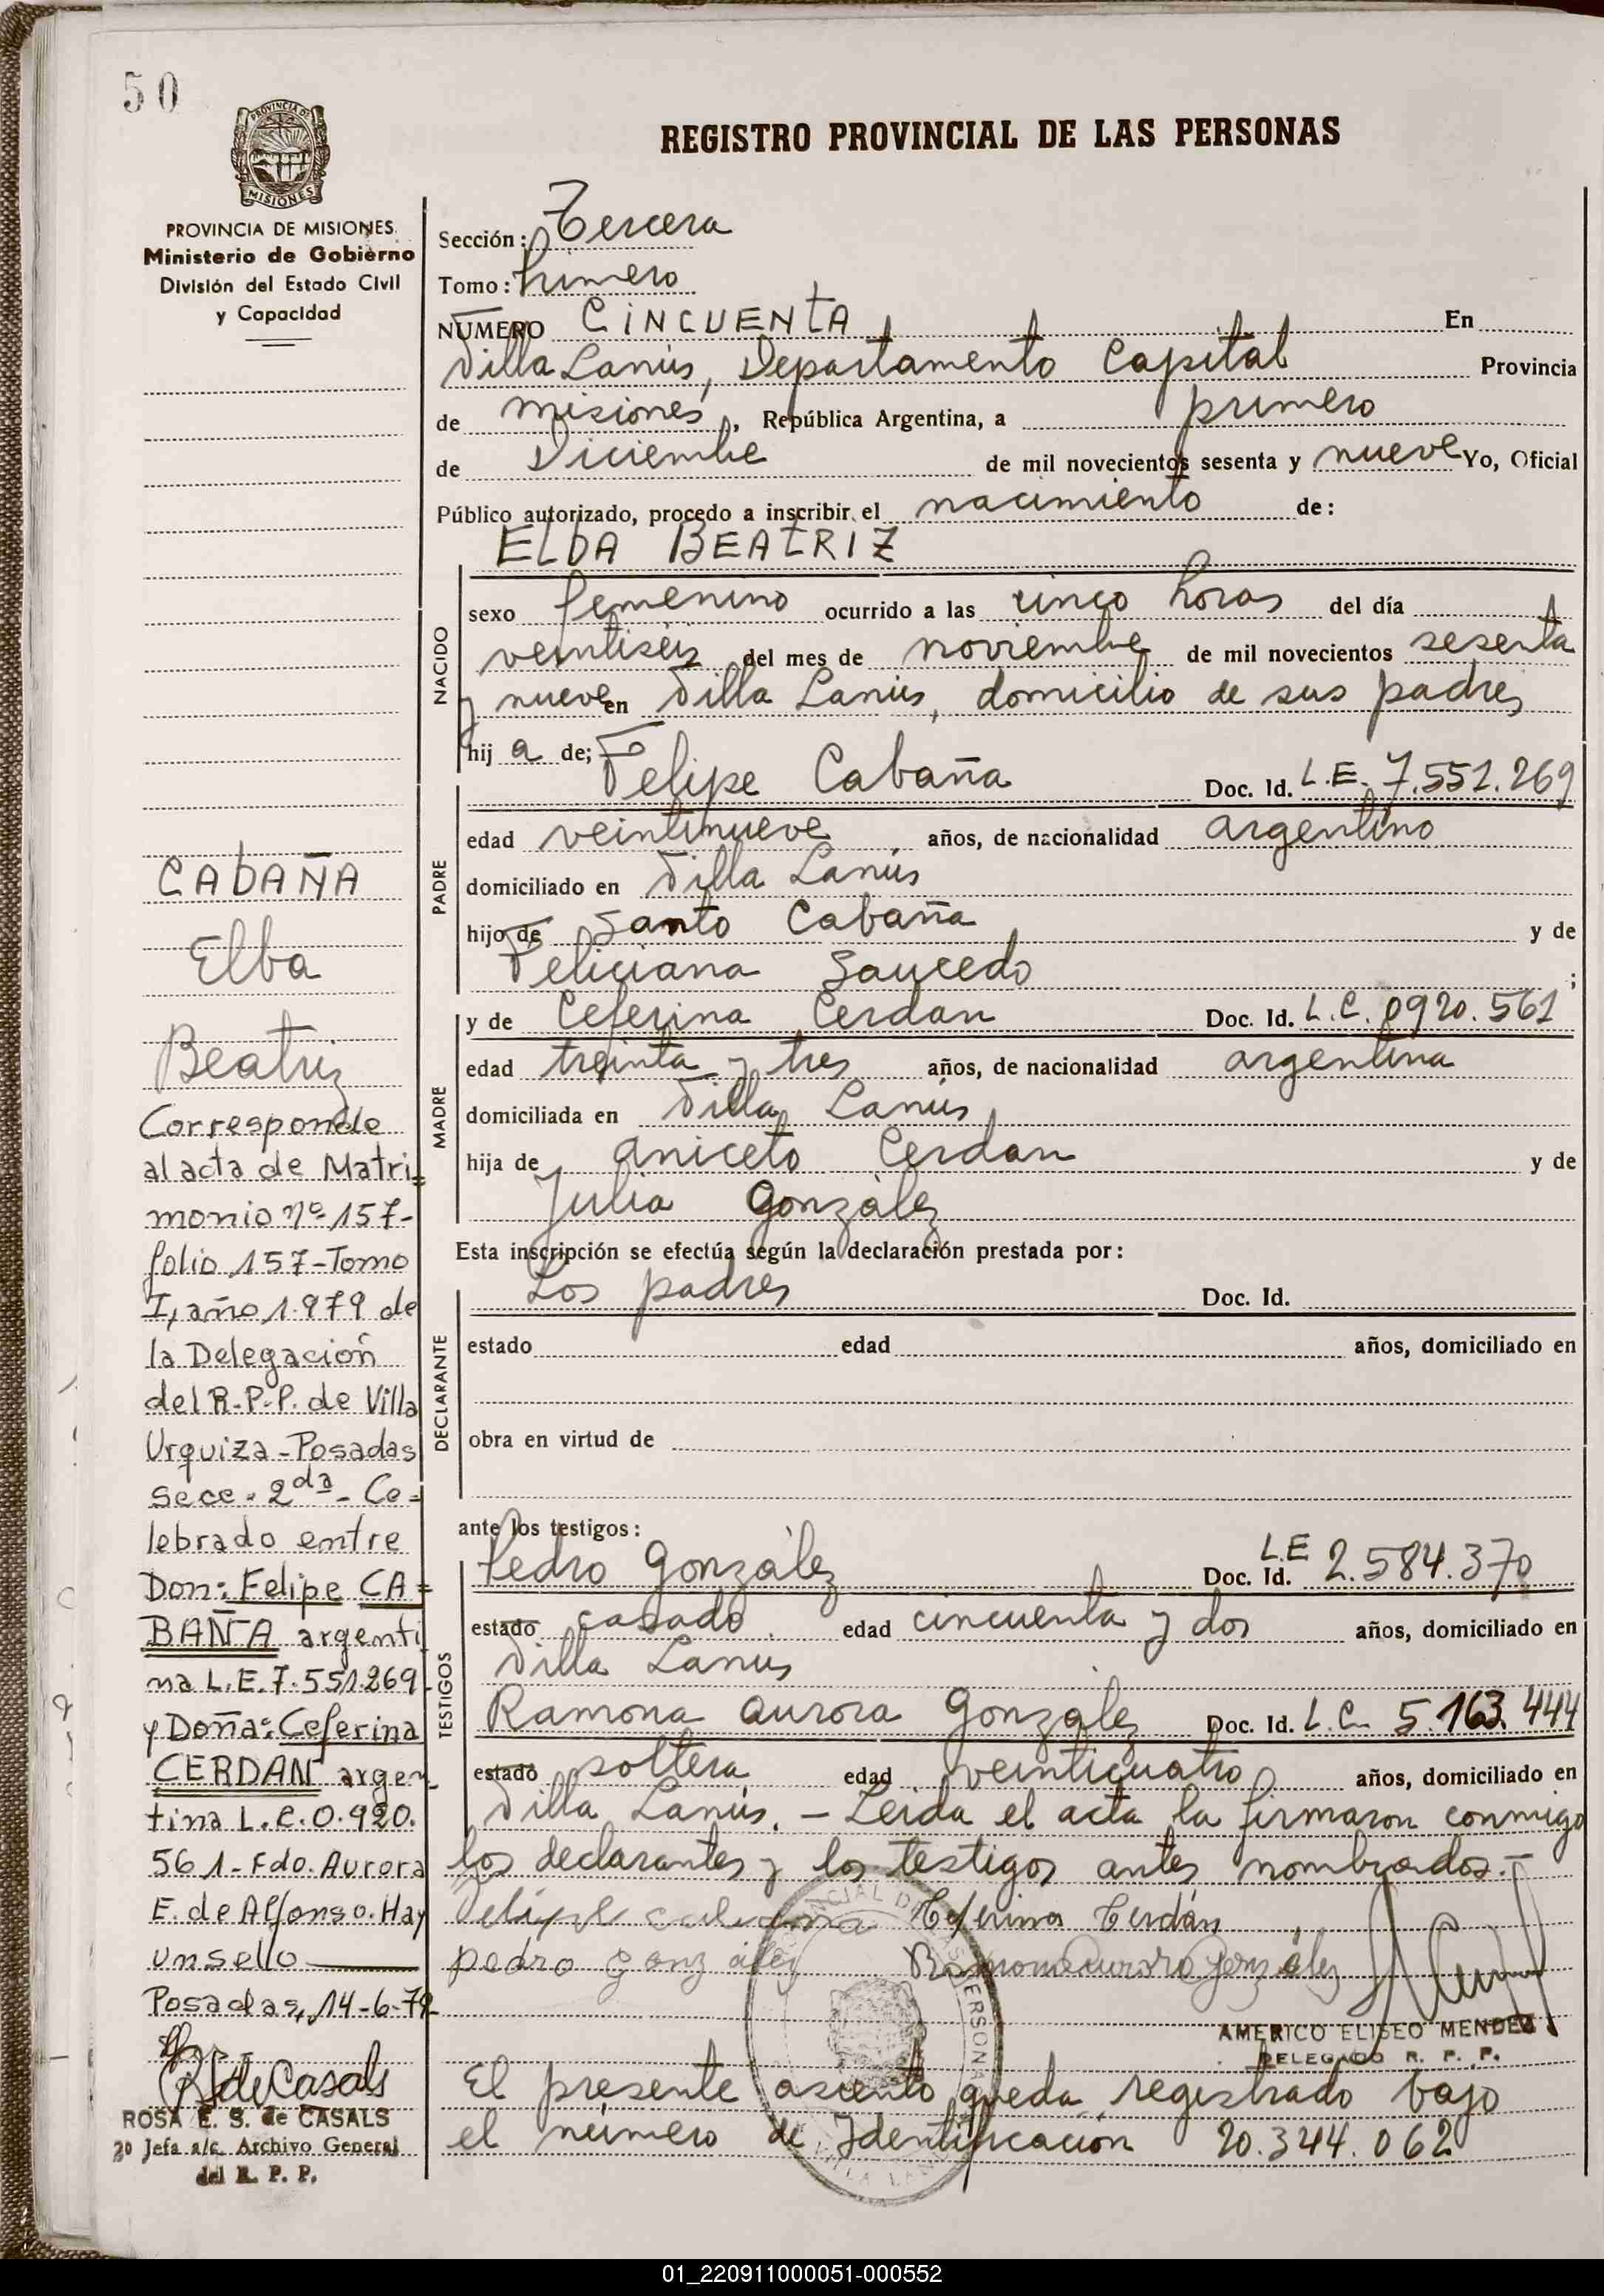 50
PROVINCIA DE MISIONES
REGISTRO PROVINCIAL DE LAS PERSONAS
PROVINCIA DE MISIONES
Ministerio de Gobierno
División del Estado Civil
y Capacidad
CABAÑA
Elba
Beatriz
Corresponde
al acta de Matri=
monio nº 157-
folio 157-Tomo
I, año 1.979 de
la Delegación
del R.P.P. de Villa
Urquiza-Posadas
Secc. 2da - Ce=
lebrado entre
Don: Felipe CA=
BAÑA argenti
na L.E. 7.551.269
y Doña: Ceferina
CERDAN argen
tina L.C. 0.920.
561- Fdo. Aurora
E. de Alfonso. Hay
un sello
Posadas, 14-6-79
ROSA E. S. de CASALS
Jefa a/c. Archivo General
del R. P. P.
Sección: Tercera
Tomo: Primero
NÚMERO CINCUENTA En
Villa Lanús, Departamento Capital Provincia
de Misiones, República Argentina, a primero
de Diciembre de mil novecientos sesenta y nueve Yo, Oficial
Público autorizado, procedo a inscribir el nacimiento de:
ELBA BEATRIZ
NACIDO
sexo femenino ocurrido a las cinco horas del día
veintiséis del mes de noviembre de mil novecientos sesenta
y nueve en Villa Lanús, domicilio de sus padres
hij a de;
PADRE
Felipe Cabaña Doc. Id. L.E. 7.551.269
edad veintinueve años, de nacionalidad argentino
domiciliado en Villa Lanús
hijo de Santo Cabaña y de
Feliciana Saucedo ;
MADRE
y de Ceferina Cerdan Doc. Id. L.C. 0920.561
edad treinta y tres años, de nacionalidad argentina
domiciliada en Villa Lanús
hija de Aniceto Cerdan y de
Julia González
Esta inscripción se efectúa según la declaración prestada por:
DECLARANTE
Los padres Doc. Id.
estado edad años, domiciliado en
obra en virtud de
ante los testigos:
TESTIGOS
Pedro González Doc. Id. L.E 2.584.370
estado casado edad cincuenta y dos años, domiciliado en
Villa Lanus
Ramona Aurora González Doc. Id. L.C. 5.163.444
estado soltera edad veinticuatro años, domiciliado en
Villa Lanús. - Leída el acta la firmaron conmigo
los declarantes y los testigos antes nombrados.-
Ceferina Cerdán
pedro gonzález Ramona aurora gonzález
AMERICO ELISEO MENDEZ
DELEGADO R. P. P.
El presente asiento queda registrado bajo
el número de Identificación 20.344.062
01_220911000051-000552